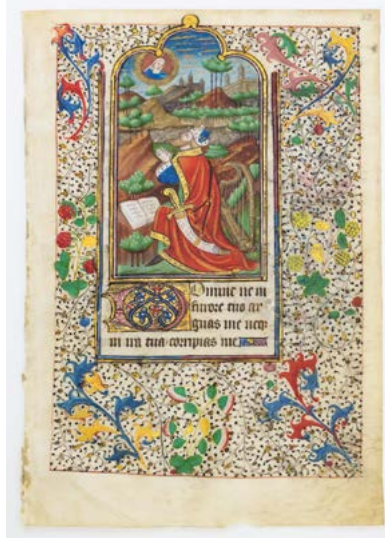 Domine ne in
furore tuo ar
guas me neqȝ
in ira tua corripias me